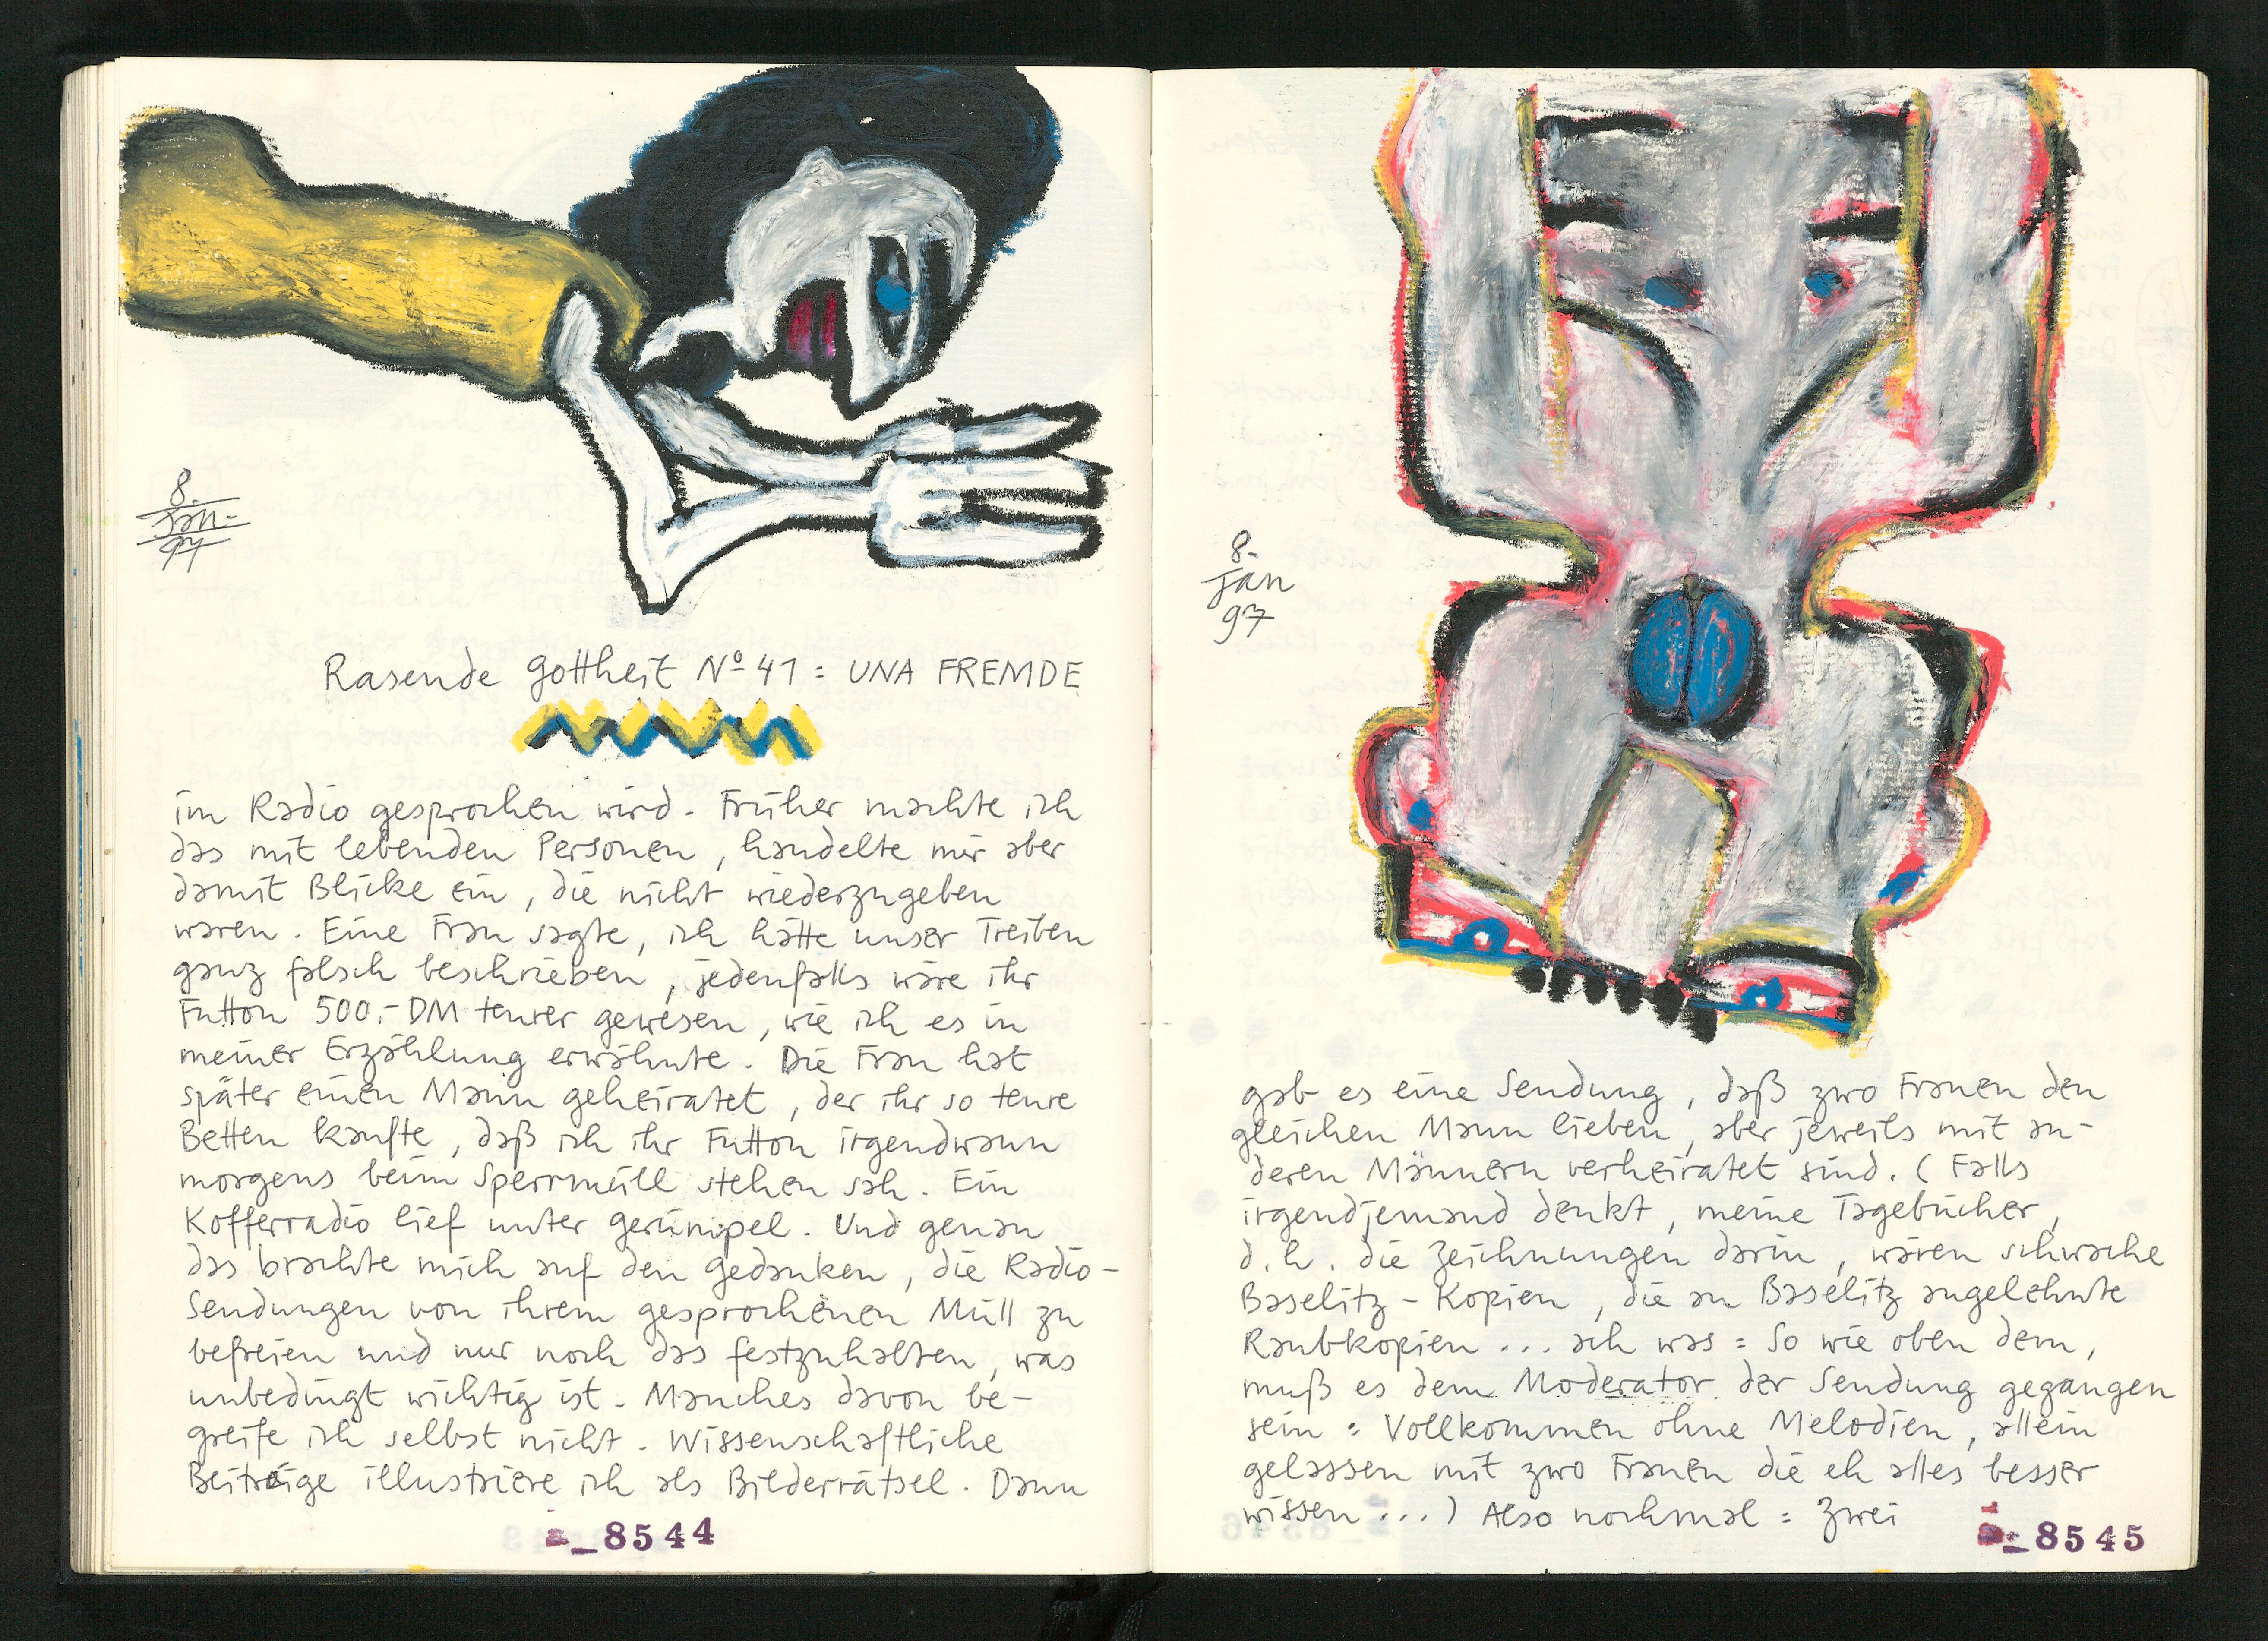 8.
Jan.
97
Rasende Gottheit Nº 41 : UNA FREMDE
im Radio gesprochen wird. Früher machte ich
das mit lebenden Personen, handelte mir aber
damit Blicke ein, die nicht wiederzugeben
waren. Eine Frau sagte, ich hätte unser Treiben
ganz falsch beschrieben, jedenfalls wäre ihr
Futton 500,- DM teurer gewesen, wie ich es in
meiner Erzählung erwähnte. Die Frau hat
später einen Mann geheiratet, der ihr so teure
Betten kaufte, daß ich ihr Futton irgendwann
morgens beim Sperrmüll stehen sah. Ein
Kofferradio lief unter Gerümpel. Und genau
das brachte mich auf den Gedanken, die Radio-
Sendungen von ihrem gesprochenen Müll zu
befreien und nur noch das festzuhalten, was
unbedingt wichtig ist. Manches davon be-
greife ich selbst nicht. Wissenschaftliche
Beiträge illustriere ich als Bilderrätsel. Dann
8544
8.
Jan
97
gab es eine Sendung, daß zwo Frauen den
gleichen Mann lieben, aber jeweils mit an-
deren Männern verheiratet sind. (Falls
irgendjemand denkt, meine Tagebücher,
d.h. die Zeichnungen darin, wären schwache
Baselitz-Kopien, die an Baselitz angelehnte
Raubkopien... ach was : So wie oben dem,
muß es dem Moderator der Sendung gegangen
sein : Vollkommen ohne Melodien, allein
gelassen mit zwo Frauen die eh alles besser
wissen...) Also nochmal : Zwei
8545